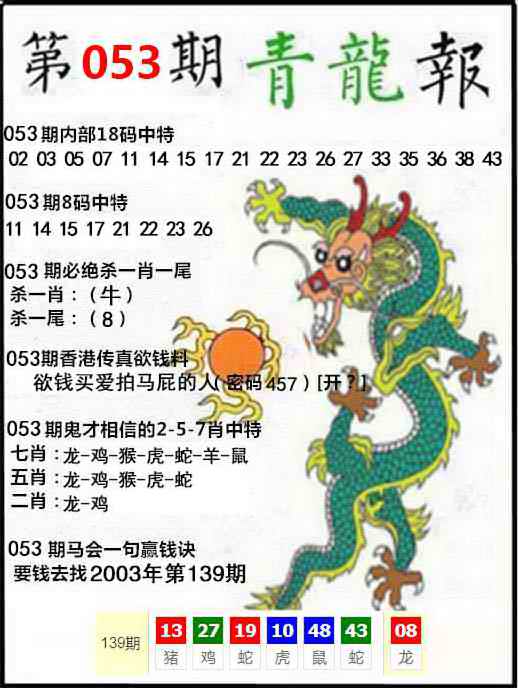 第053期 青龍報
053期内部18码中特
02 03 05 07 11 14 15 17 21 22 23 26 27 33 35 36 38 43
053期8码中特
11 14 15 17 21 22 23 26
053 期必绝杀一肖一尾
杀一肖：（牛）
杀一尾：（8）
053期香港传真欲钱料
欲钱买爱拍马屁的人(密码457）[开？]
053期鬼才相信的2-5-7肖中特
七肖：龙-鸡-猴-虎-蛇-羊-鼠
五肖：龙-鸡-猴-虎-蛇
二肖：龙-鸡
053 期马会一句赢钱诀
要钱去找2003年第139期
139期 13 27 19 10 48 43 08
猪 鸡 蛇 虎 鼠 蛇 龙